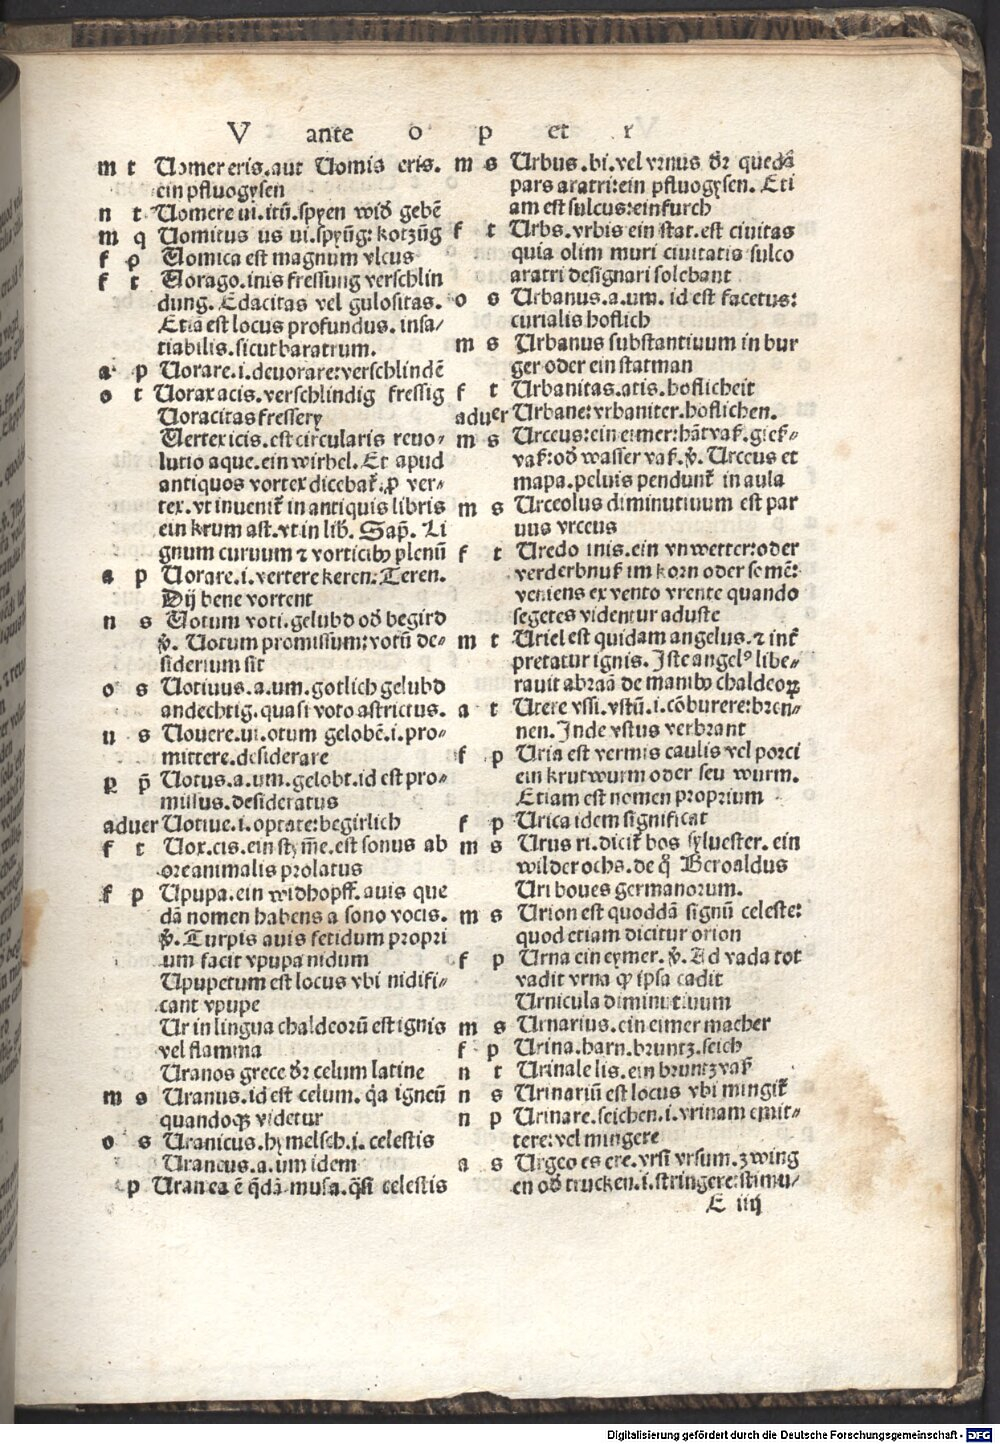 V ante o p et r
m t Uomer eris. aut Uomis eris.
ein pfluogysen
n t Uomere ui. itū. spyen wid̄ gebē
m q Uomitus us ui. spyūg: kotzūg
f p Uomica est magnum vlcus
f t Uorago. inis fressung verschlin
dung. Edacitas vel gulositas.
Etiā est locus profundus. insa⸗
tiabilis. sicut baratrum.
a p Uorare. i. deuorare: verschlindē
o t Uorax acis. verschlindig fressig
Uoracitas fressery
Uertex icis. est circularis reuo⸗
lutio aque. ein wirbel. Et apud
antiquos vortex dicebat᷑. ꝓ ver⸗
tex. vt inuenit᷑ in antiquis libris
ein krum ast. vt in lib̄. Sap̄. Li
gnum curuum ⁊ vorticibꝫ plenū
a p Uorare. i. vertere keren. Teren.
Dij bene vortent
n s Uotum voti. gelubd od̄ begird
ꝟ. Uotum promissum: votū de⸗
siderium sit
o s Uotiuus. a. um. gotlich gelubd
andechtig. quasi voto astrictus.
n s Uouere. ui. otum gelobē. i. pro⸗
mittere. desiderare
p̲ p̄ Uotus. a. um. gelobt. id est pro⸗
missus. desideratus
aduer Uotiue. i. optate: begirlich
f t Uox. cis. ein stym̄e. est sonus ab
ore animalis prolatus
f p Upupa. ein widhopff. auis que
dā nomen habens a sono vocis.
ꝟ. Turpis auis fetidum propri
um facit vpupa nidum
Upupetum est locus vbi nidifi⸗
cant vpupe
Ur in lingua chaldeorū est ignis
vel flamma
Uranos grece dr̄ celum latine
m s Uranus. id est celum. q̇a igneū
quandoqꝫ videtur
o s Uranicus. hymelsch. i. celestis
Uraneus. a. um idem
p Uranea ē q̄dā musa. q̄si celestis
m s Urbus. bi. vel vruus dr̄ quedā
pars aratri: ein pfluogysen. Eti
am est sulcus: ein furch
f t Urbs. vrbis ein stat. est ciuitas
quia olim muri ciuitatis sulco
aratri designari solebant
o s Urbanus. a. um. id est facetus:
curialis hoflich
m s Urbanus substantiuum in bur
ger oder ein statman
f t Urbanitas. atis. hoflicheit
aduer Urbane: vrbaniter. hoflichen.
m s Urceus: ein eimer: hātvaß. gieß⸗
vaß: od̄ wasser vaß. ꝟ. Urceus et
mapa. peluis pendunt᷑ in aula
m s Urceolus diminutiuum est par
uus vrceus
f t Uredo inis. ein vnwetter: oder
verderbnuß im korn oder somē:
veniens ex vento vrente quando
segetes videntur aduste
m t Uriel est quidam angelus. ⁊ int᷑
pretatur ignis. Iste angelꝰ libe⸗
rauit abraā de manibꝫ chaldeoꝝ
a t Urere vssi. vstū. i. cōburere: bren⸗
nen. Inde vstus verbrant
f p Uria est vermis caulis vel porci
ein krutwurm oder seu wurm.
Etiam est nomen proprium
f p Urica idem significat
m s Urus ri. dicit᷑ bos syluester. ein
wilder ochs. de q̊ Beroaldus
Uri boues germanorum.
m s Urion est quoddā signū celeste:
quod etiam dicitur orion
f p Urna ein eymer. ꝟ. Ad vada tot
vadit vrna ꝙ ipsa cadit
Urnicula diminutiuum
m s Urnarius. ein eimer macher
f p Urina. harn. bruntz. seich
n t Urinale lis. ein bruntzvaß
n s Urinariū est locus vbi mingit᷑
n p Urinare. seichen. i. vrinam emit⸗
tere: vel mingere
a s Urgeo es ere. vrsi vrsum. zwing
en od̄ trucken. i. stringere: stimu⸗
E iiij
Digitalisierung gefördert durch die Deutsche Forschungsgemeinschaft - DFG